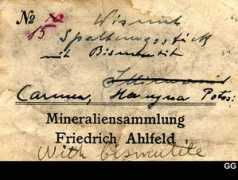 № 15 Wismut
Spaltungsstück
mit Bismutit
Carmen, Mayna Potosi
Mineraliensammlung
Friedrich Ahlfeld
With bismutite
GG